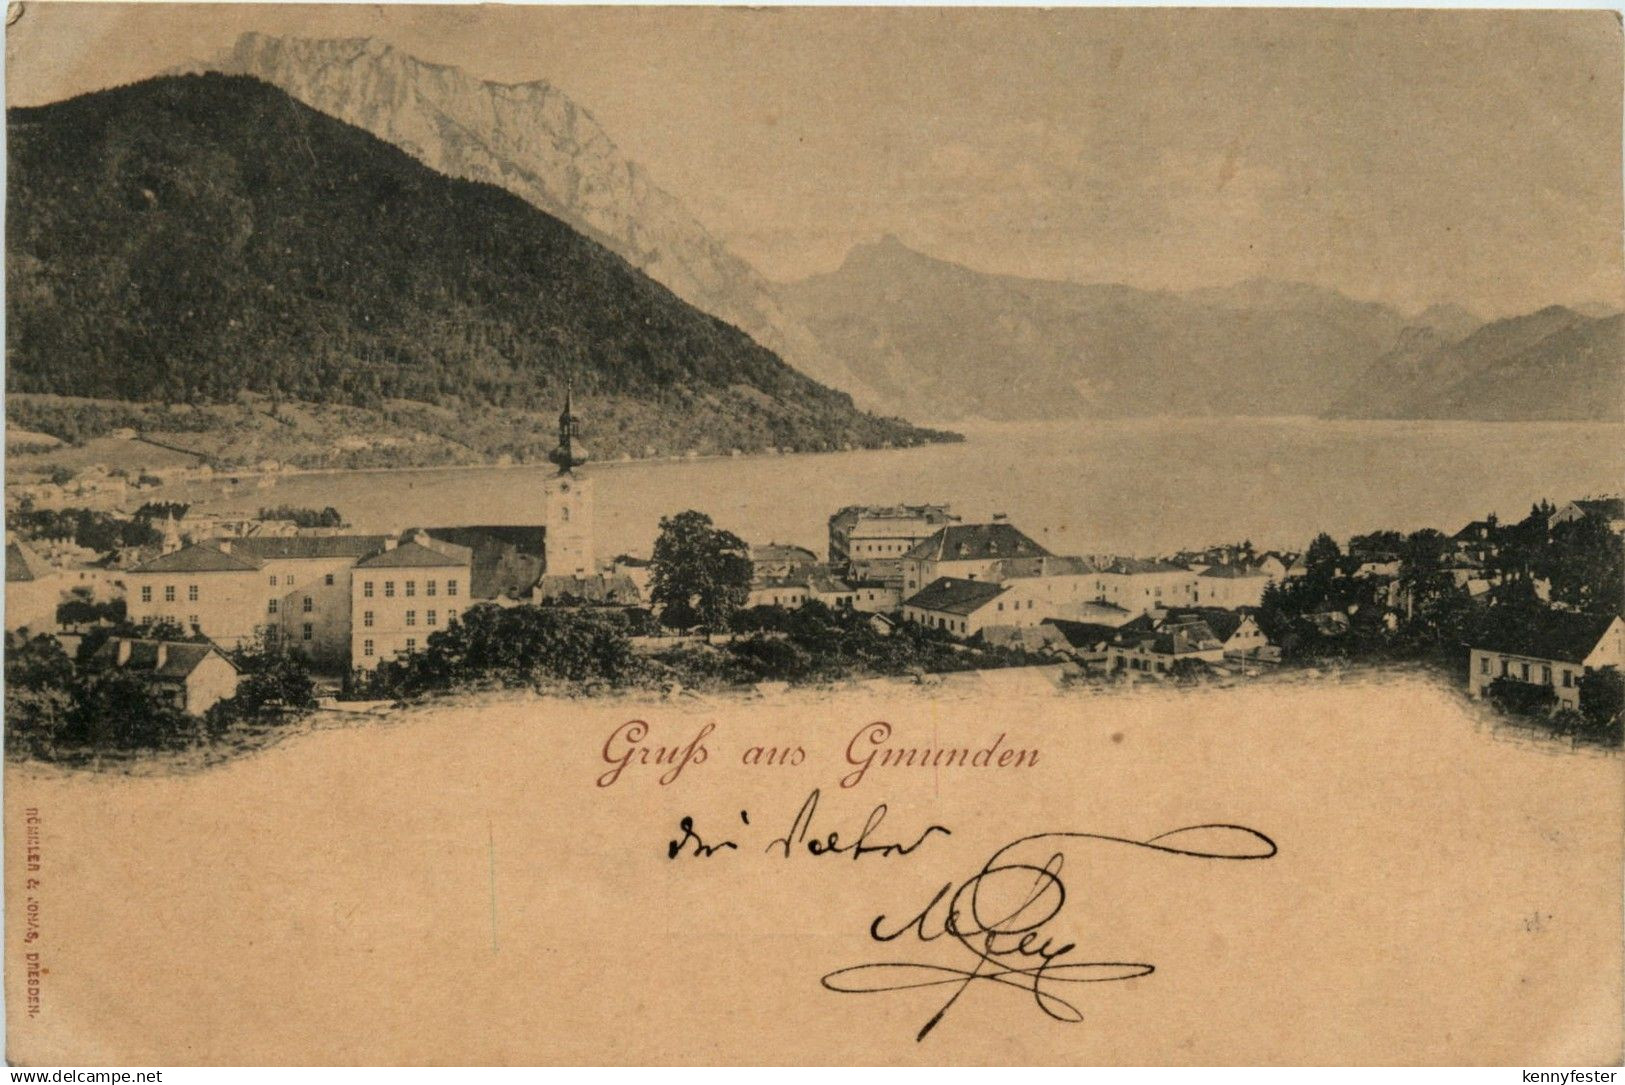 Gruß aus Gmunden
RÖMMLER & JONAS, DRESDEN.
www.delcampe.net
kennyfester